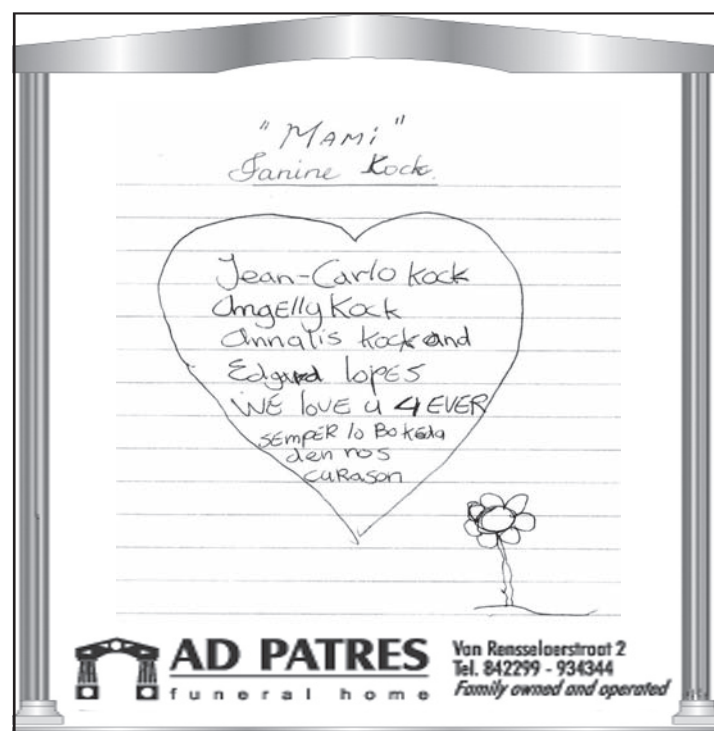 "Mami"
Janine Kock.
Jean-Carlo Kock
Angelly Kock
Annalis Kock and
Edgard lopes
WE love u 4 EVER
SEMPER lo Bo keda
den nos
curason
AD PATRES
funeral home
Van Rensselaerstraat 2
Tel. 842299 - 934344
Family owned and operated